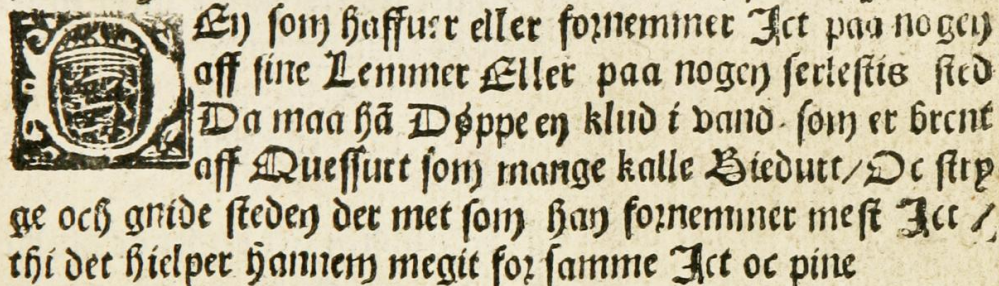 DEn som haffuer eller fornemmer Ict paa nogen
aff sine Lemmer Eller paa nogen serlestis sted
Da maa hā Døppe en klud i vand som er brent
aff Quessurt som mange kalle Biedurt / Oc stry
ge och gnide steden der met som han fornemmer mest Ict /
thi det hielper hannem megit for samme Ict oc pine